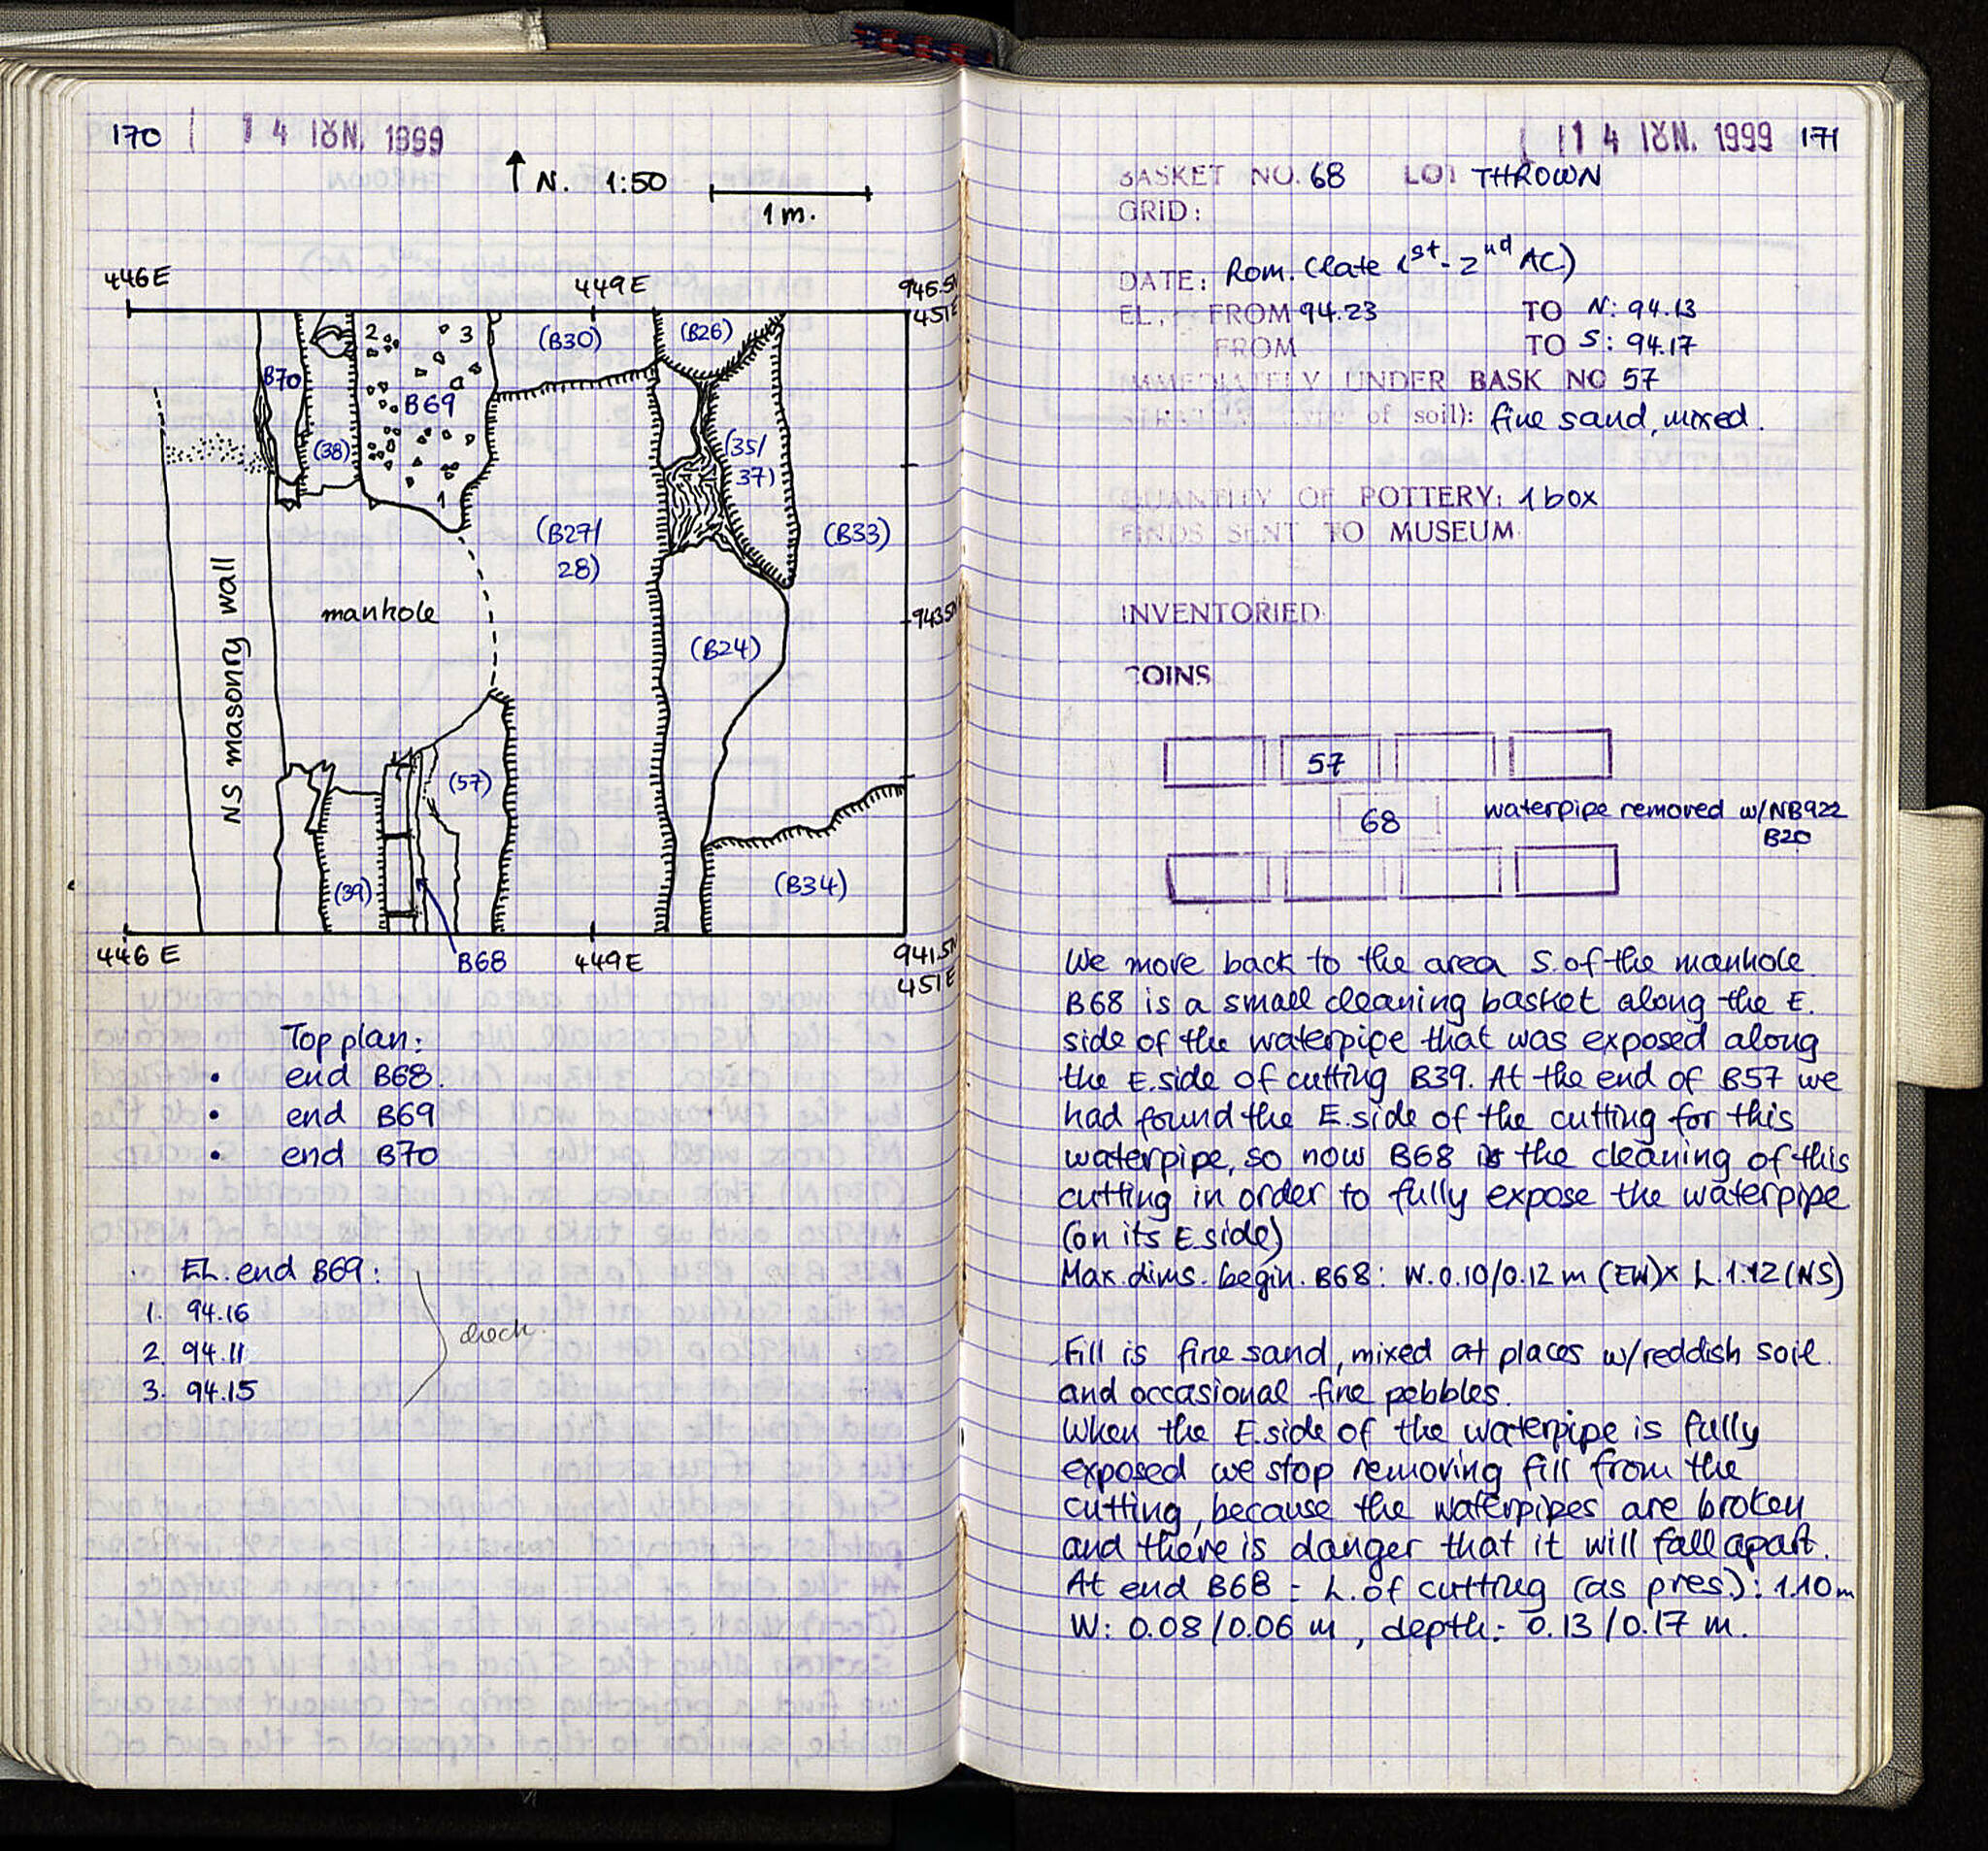 170 14 ΙΟΥΝ. 1999
N. 1:50
1 m.
446E 449E 945.5N
451E
2 3 (B30) (B26)
B70
B69
(38) (35/
37)
1
(B27/
28) (B33)
NS masonry wall
manhole 943.5N
(B24)
(57)
(39) (B34)
446E B68 449E 941.5N
451E
Top plan:
• end B68.
• end B69
• end B70
EL. end B69:
1. 94.16
2. 94.11 check.
3. 94.15
14 ΙΟΥΝ. 1999 171
BASKET NO. 68 LOT THROWN
GRID:
DATE: Rom. (late 1st - 2nd AC)
EL. FROM 94.23 TO N: 94.13
FROM TO S: 94.17
IMMEDIATELY UNDER BASK NO 57
of soil): fine sand, mixed.
QUANTITY OF POTTERY: 1 box
FINDS SENT TO MUSEUM
INVENTORIED
COINS
57
68 waterpipe removed w/NB922
B20
We move back to the area S. of the manhole.
B68 is a small cleaning basket along the E.
side of the waterpipe that was exposed along
the E. side of cutting B39. At the end of B57 we
had found the E. side of the cutting for this
waterpipe, so now B68 is the cleaning of this
cutting in order to fully expose the waterpipe
(on its E. side)
Max. dims. begin. B68: W. 0.10/0.12 m (EW) x L. 1.12 (NS)
Fill is fine sand, mixed at places w/reddish soil
and occasional fine pebbles.
When the E. side of the waterpipe is fully
exposed we stop removing fill from the
cutting, because the waterpipes are broken
and there is danger that it will fall apart.
At end B68 = L. of cutting (as pres): 1.10 m
W: 0.08/0.06 m, depth: 0.13/0.17 m.